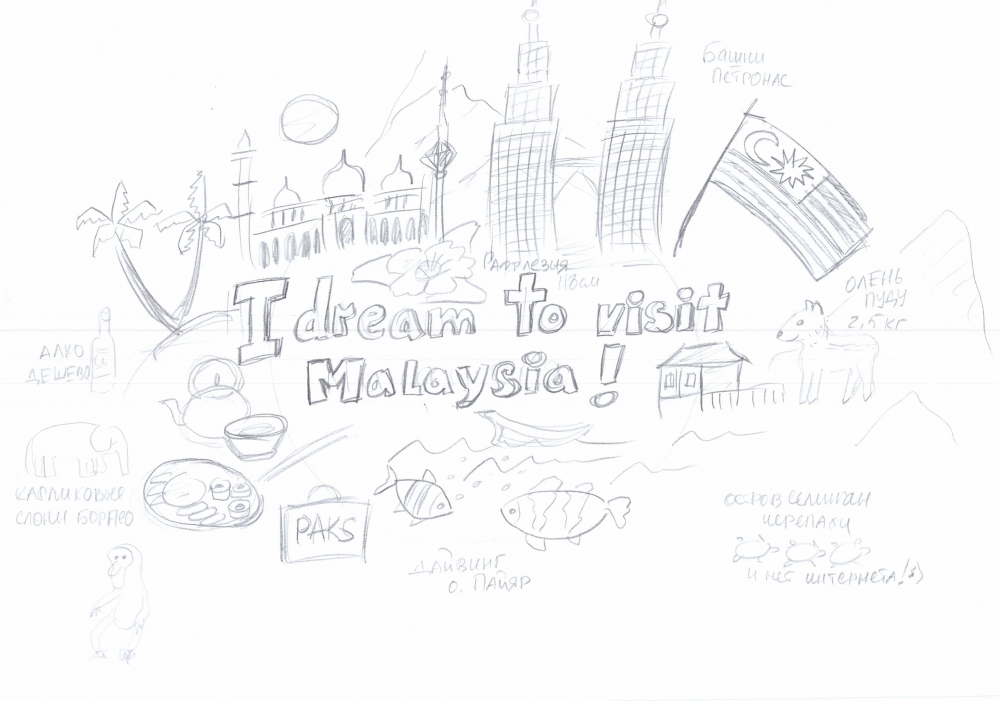 Башни
Петронас
Раффлезия
I dream to visit
Malaysia!
ОЛЕНЬ
ПУДУ
2,5 кг
АЛКО
ДЕШЕВО
КАРЛИКОВЫЕ
СЛОНЫ БОРНЕО
PAKS
ДАЙВИНГ
О. ПАЙЯР
ОСТРОВ СЕЛИНГАН
ЧЕРЕПАХИ
И НЕТ ИНТЕРНЕТА! :)